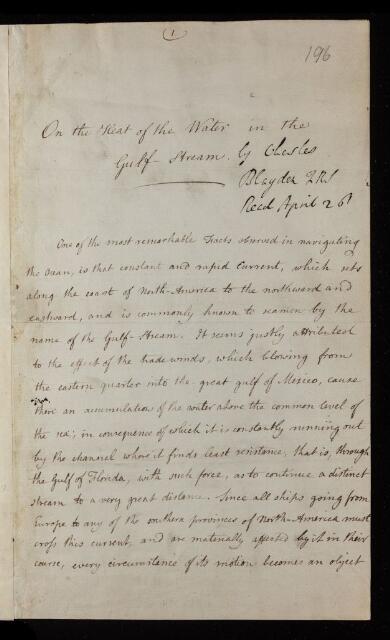 1
196
On the Heat of the Water in the
Gulf-Stream. by Charles
Blagden F.R.S
Read April 26
One of the most remarkable Facts observed in navigating
the Ocean, is that constant and rapid Current, which sets
along the coast of North-America to the northward and
eastward, and is commonly known to seamen by the
name of the Gulf-Stream. It seems justly attributed
to the effect of the trade winds, which blowing from
the eastern quarter into the great gulf of Mexico, cause
there an accumulation of the water above the common level of
the sea; in consequence of which it is constantly running out
by the channel where it finds least resistance, that is, through
the Gulf of Florida, with such force, as to continue a distinct
stream to a very great distance. Since all ships going from
Europe to any of the southern provinces of North-America must
cross this current, and are materially affected by it in their
course, every circumstance of its motion becomes an object